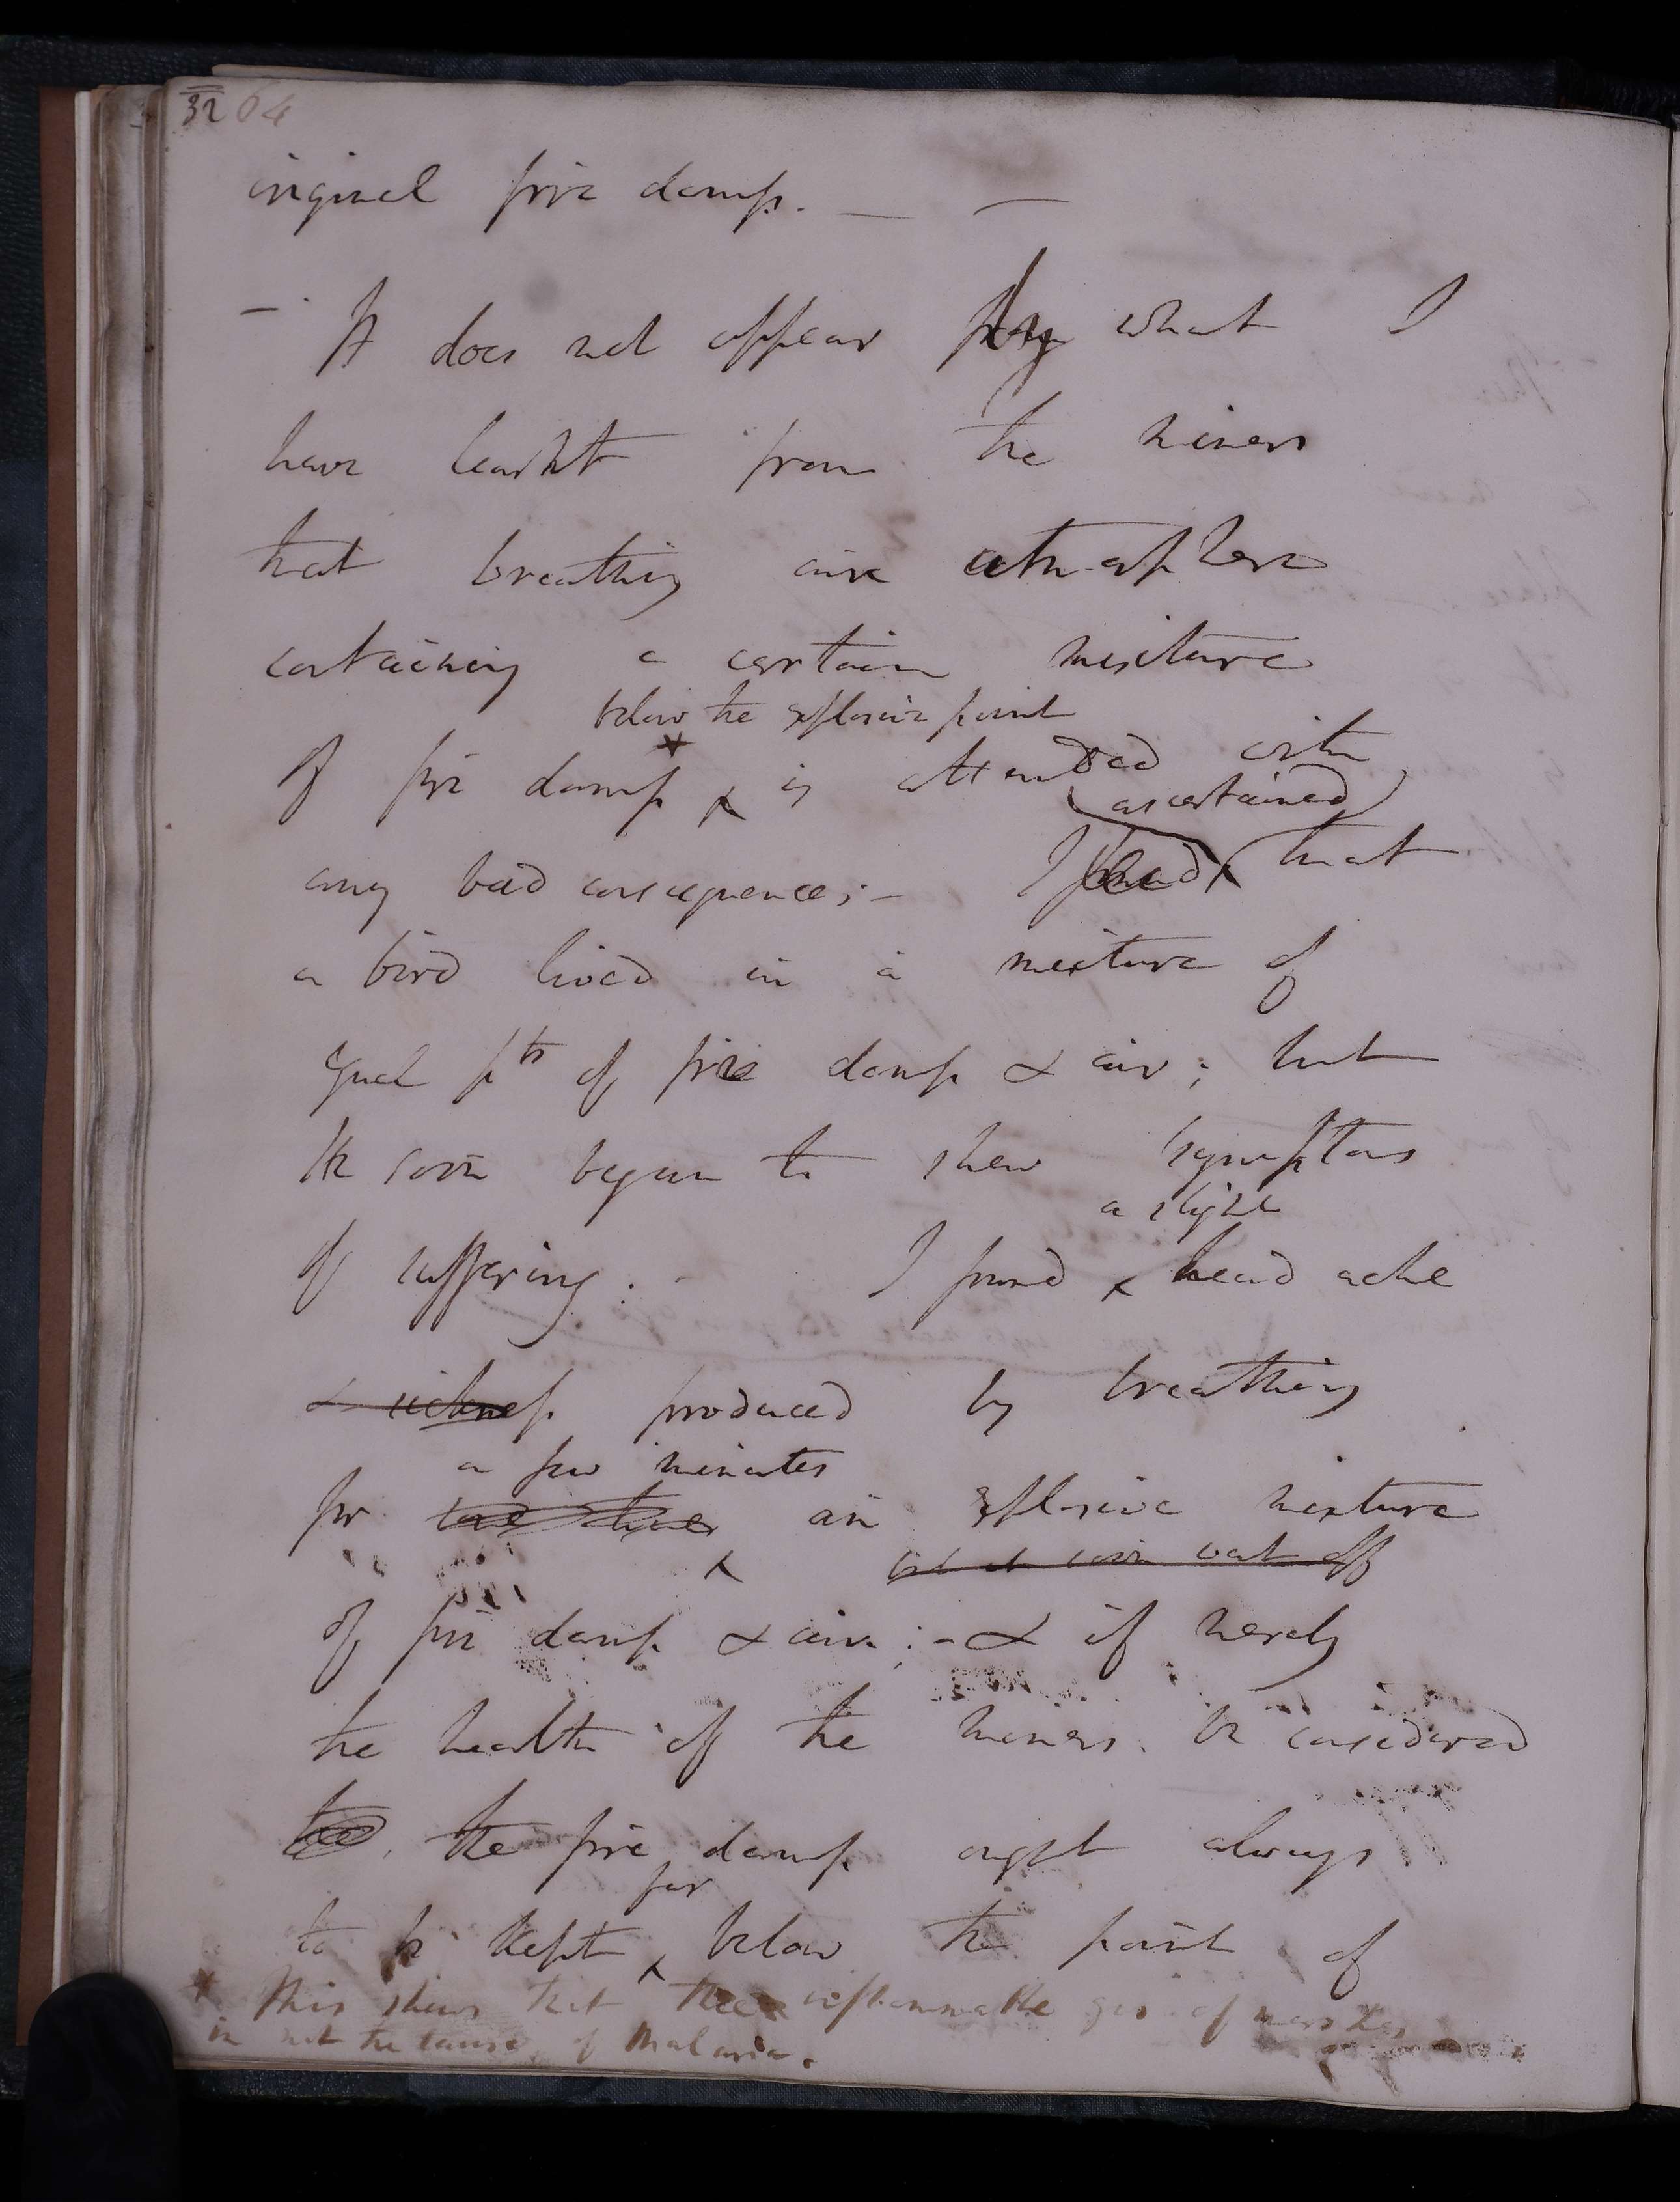 32 64
original fire damp. — —
— It does not appear from what I
have learnt from the miners
that breathing air atmosphere
containing a certain mixture
below the explosive point
of fire damp * is attended with
ascertained
any bad consequence; – I found that
a bird lived in a mixture of
equal pts of fire damp & air; but
it soon began to shew symptoms
a slight
of suffering: – I found head ache
& sickness produced by breathing
a few minutes
for an explosive mixture
but it soon went off
of fire damp & air; – & if merely
the health of the miners be considered
the fire damp ought always
far
to be kept below the point of
* This shews that the inflammable gas of marshes
is not the cause of Malaria.